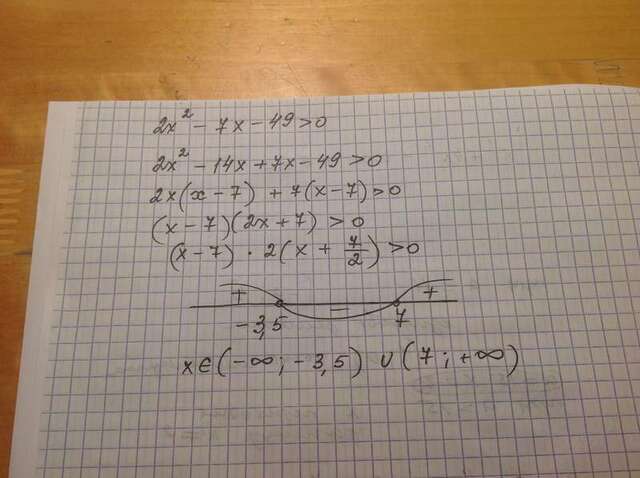 2x² - 7x - 49 > 0
2x² - 14x + 7x - 49 > 0
2x(x - 7) + 7(x - 7) > 0
(x - 7)(2x + 7) > 0
(x - 7) · 2(x + 7/2) > 0
+ - +
-3,5 7
x ∈ (-∞; -3,5) ∪ (7; +∞)